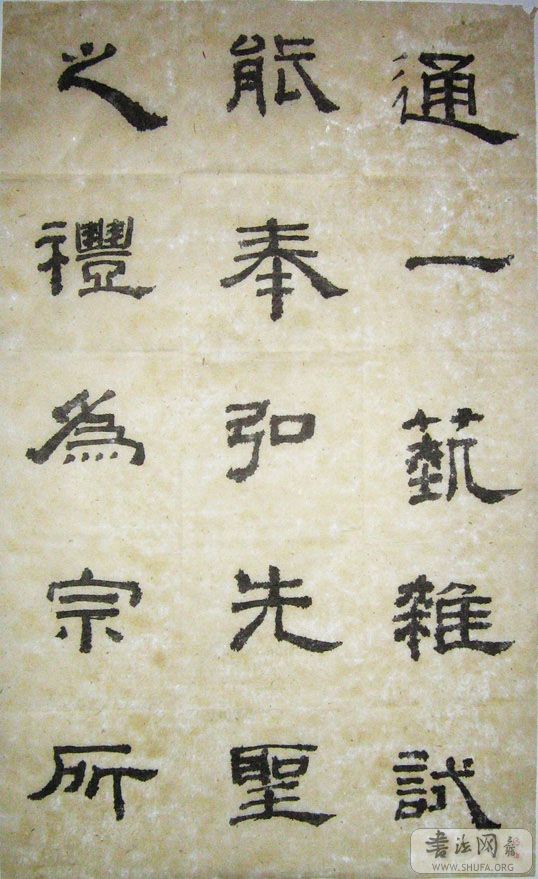 通一藝雜試
能奉弘先聖
之禮為宗所
書法网
WWW.SHUFA.ORG